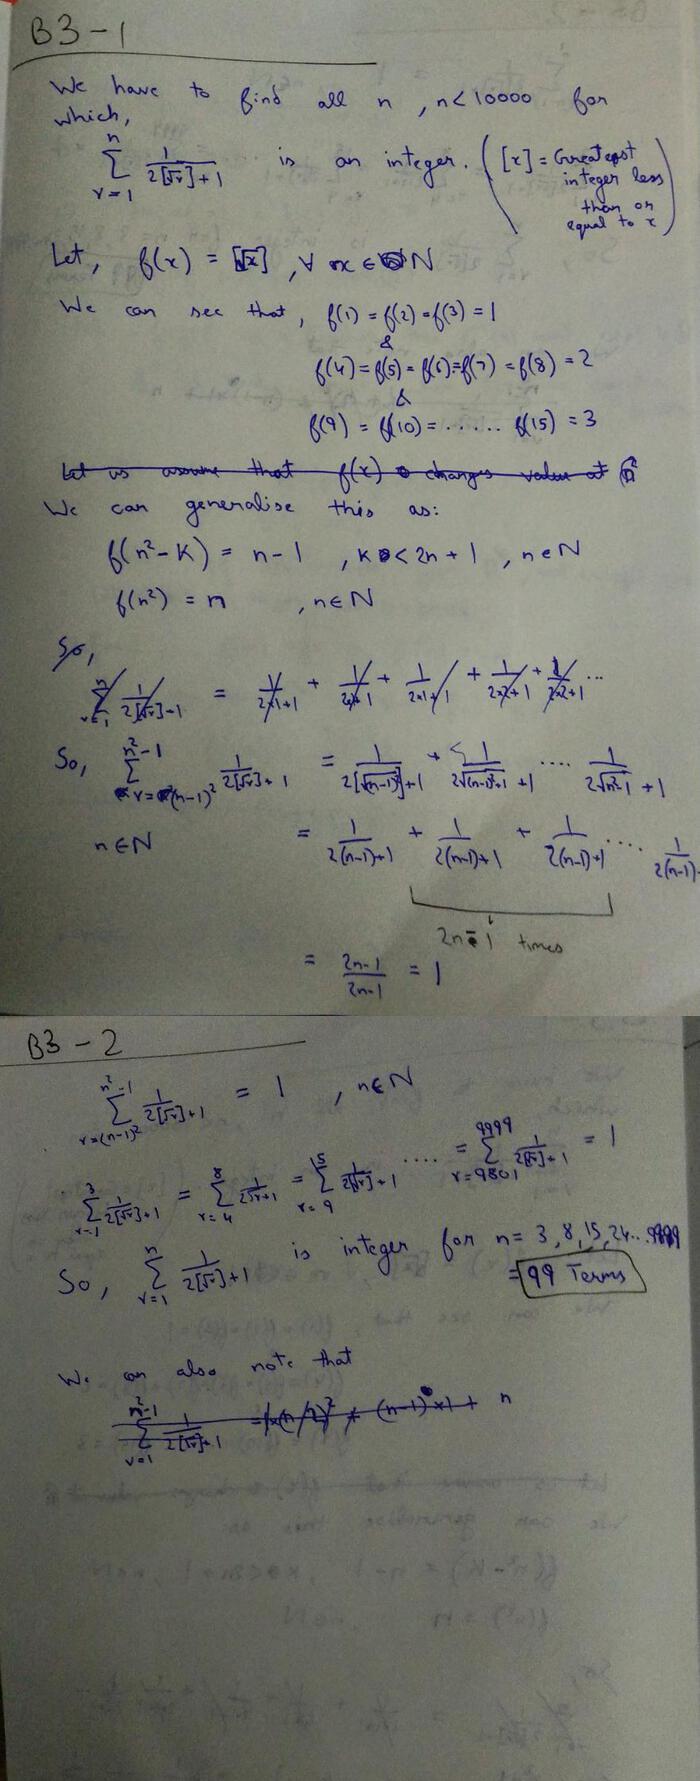 B3-1
We have to find all n , n<10000 for
which,
n
∑ 1/(2[√r]+1) is an integer. ([x] = Greatest
r=1
integer less
than or
equal to x)
Let, f(x) = [√x] , ∀ x ∈ N
We can see that, f(1) = f(2) = f(3) = 1
&
f(4) = f(5) = f(6) = f(7) = f(8) = 2
&
f(9) = f(10) = ...... f(15) = 3
Let us assume that f(x) changes value at n²
We can generalise this as:
f(n²-K) = n-1 , K < 2n+1 , n∈N
f(n²) = n , n∈N
So,
n
∑ 1/(2[√r]+1) = 1/(2×1+1) + 1/(2×1+1) + 1/(2×1+1) + 1/(2×2+1) + 1/(2×2+1) ...
r=1
So, n²-1
∑ 1/(2[√r]+1) = 1/(2[√(n-1)²]+1) + 1/(2√(n-1)²+1 +1) .... 1/(2√n²-1 +1)
r=(n-1)²
n∈N = 1/(2(n-1)+1) + 1/(2(n-1)+1) + 1/(2(n-1)+1) .... 1/(2(n-1)
2n-1 times
= (2n-1)/(2n-1) = 1
B3-2
n²-1
∑ 1/(2[√r]+1) = 1 , n∈N
r=(n-1)²
3 8 15 9999
∑ 1/(2[√r]+1) = ∑ 1/(2√r+1) = ∑ 1/(2[√r]+1) .... = ∑ 1/(2[√r]+1) = 1
r=1 r=4 r=9 r=9801
n
So, ∑ 1/(2[√r]+1) is integer for n = 3,8,15,24...9999
r=1
= 99 Terms
We can also note that
n²-1
∑ 1/(2[√r]+1) (n-1) ×1 + n
r=1